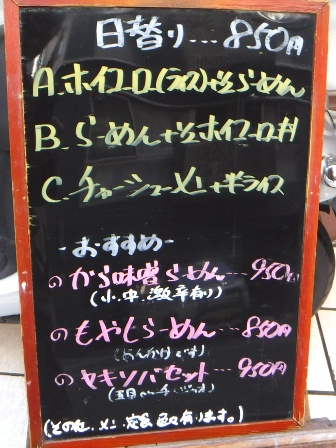 日替り…850円
A.ホイコーロ(ライス)+半らーめん
B.らーめん+半ホイコーロ丼
C.チャーシューメン+半ライス
-おすすめ-
の から味噌らーめん…950円
(小.中.激辛有り)
の もやしらーめん…850円
(あんかけです)
の ヤキソバセット…950円
(その他.メン.定食 色々有ります。)